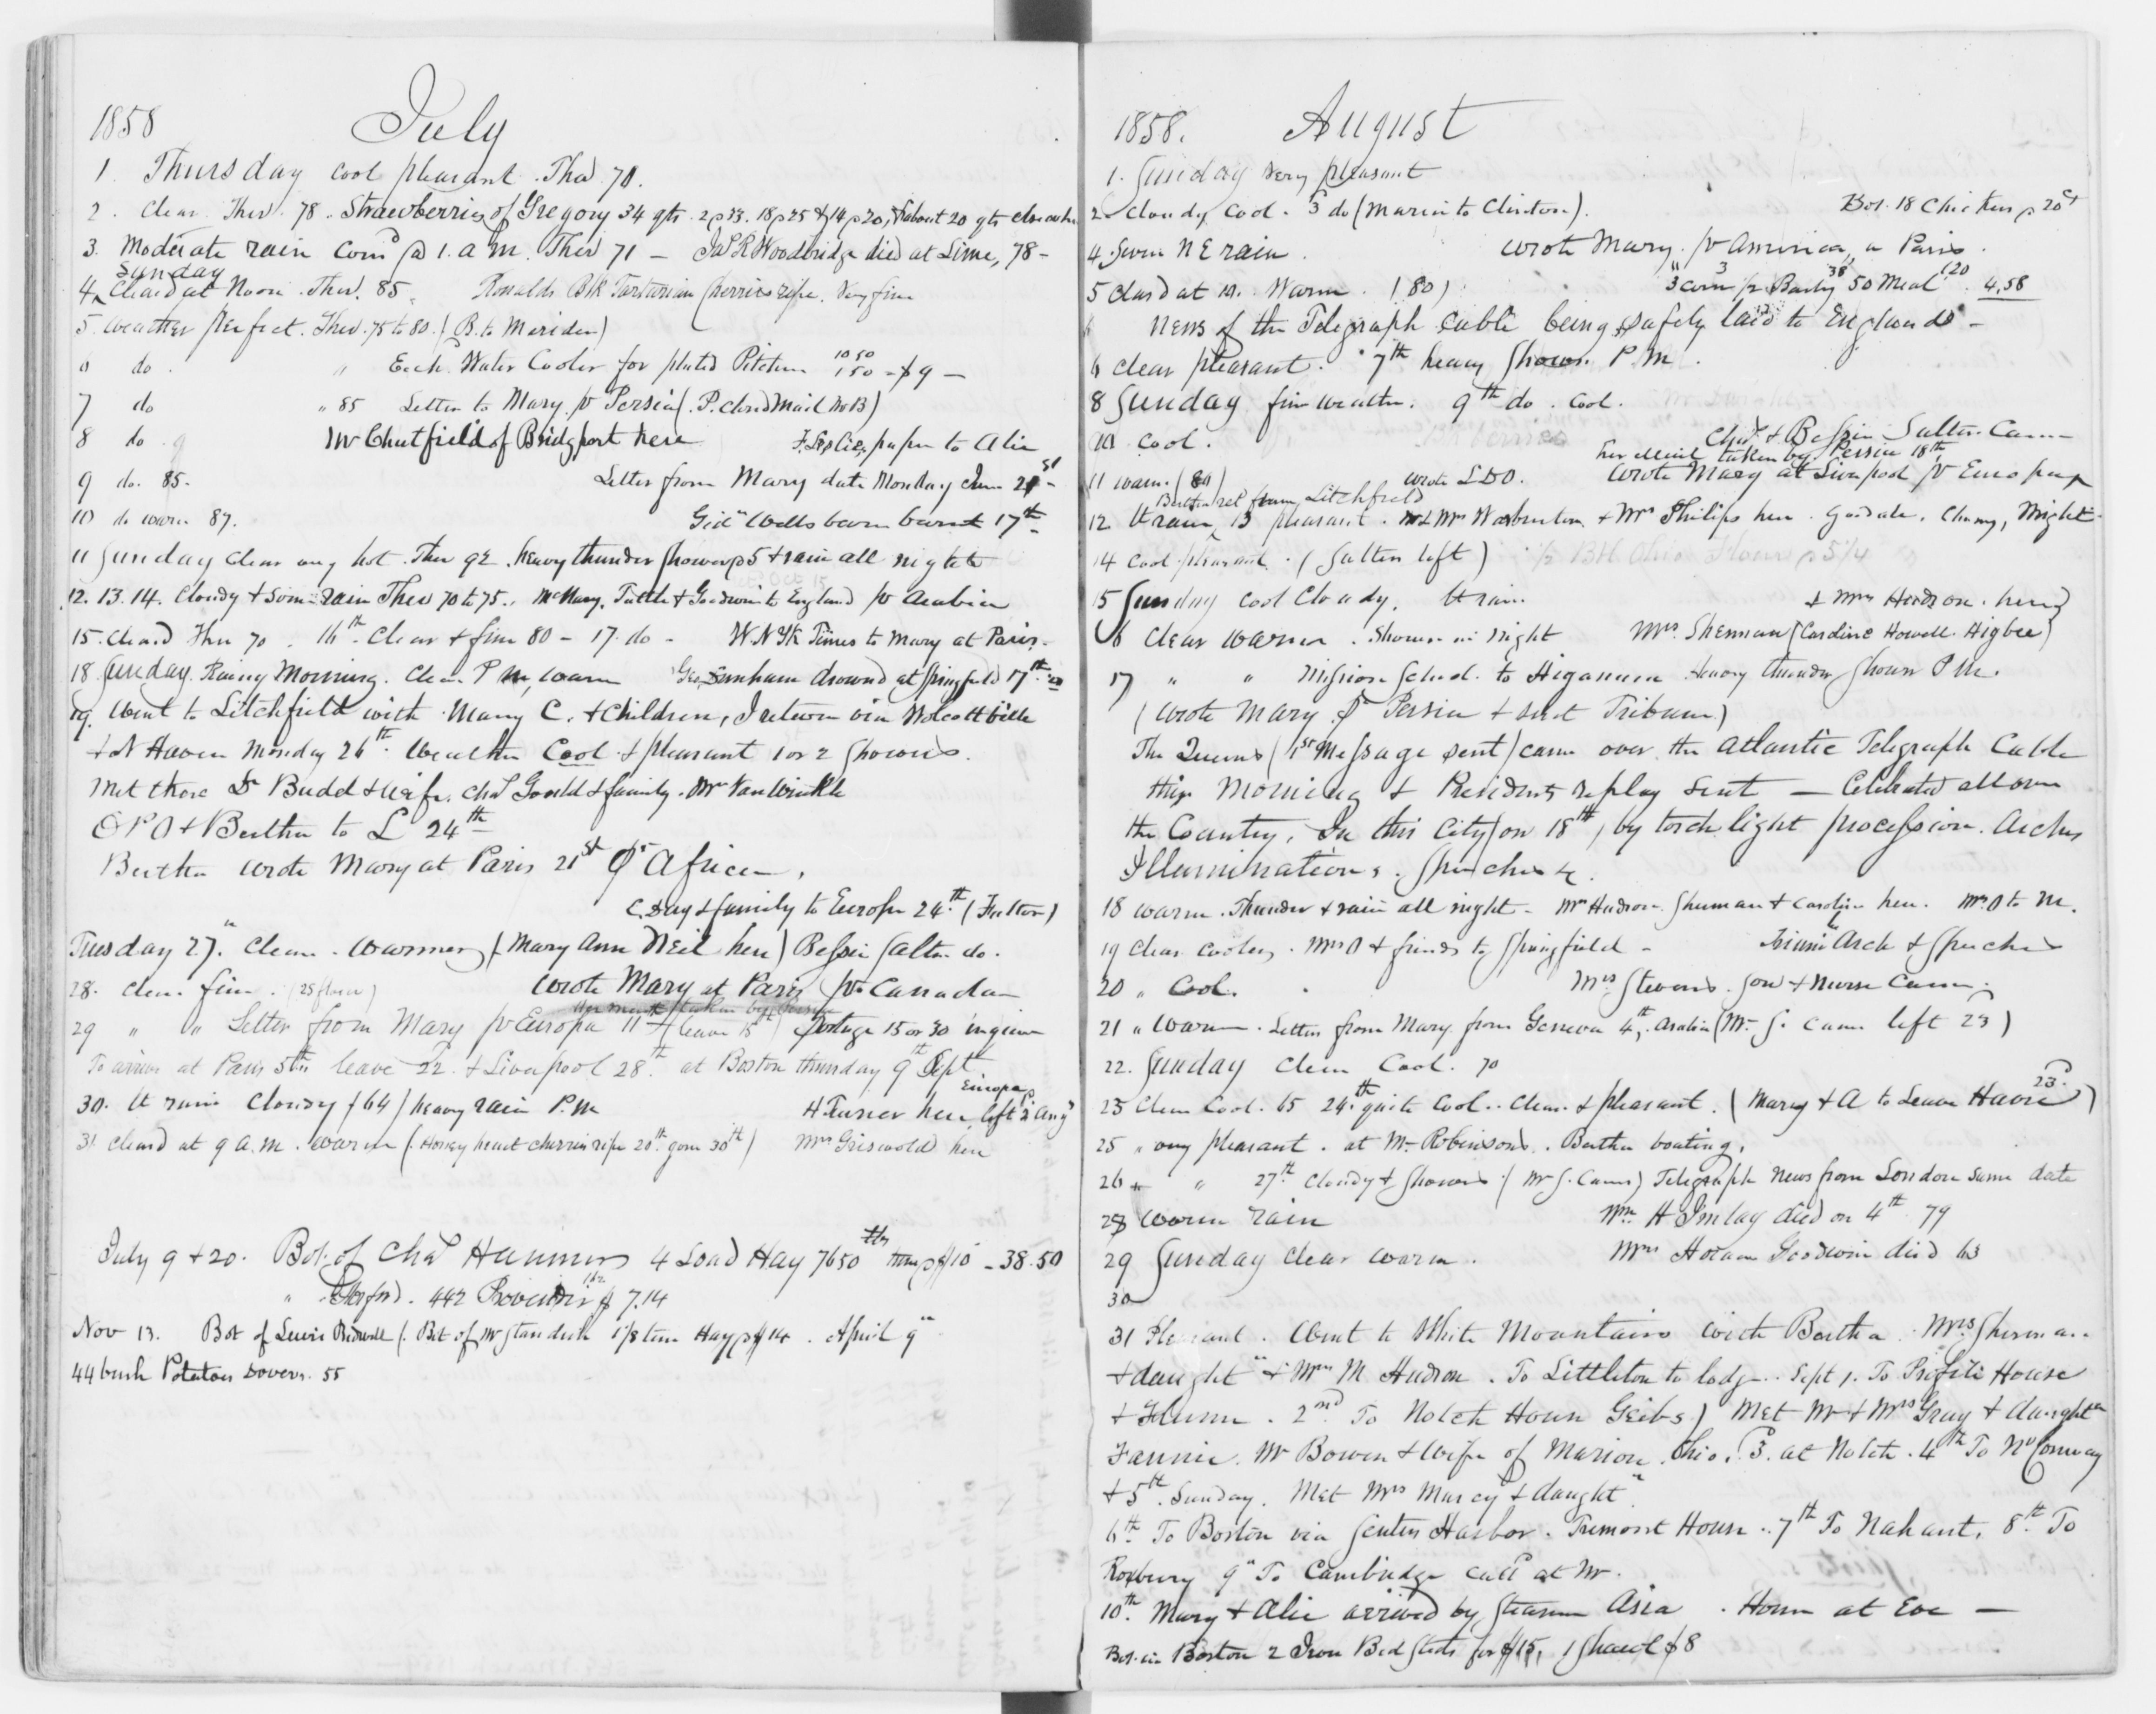 1858 July
1 Thursday cool pleasant . Ther 70.
2 . Clear Ther . 78 . Strawberries of Gregory 34 qts 2 p 23. 18 p 25 & 14 p 20, & about 20 qts elsewhere
3 Moderate rain com'd @ 1. a m. Ther 71 — Jas R Woodbridge died at Lime, 78 -
Sunday
4 Cleard at Noon . Ther. 85 Ronalds Blk Tartarian Cherries ripe. Very fine
5 Weather perfect. Ther. 75 to 80. ( B. to Meriden )
6 do . " Exch Water Cooler for plated Pitcher 10 50 1 50 - $9 —
7 do " 85 Letter to Mary. pr Persia ( P. closed Mail
8 do . Mr Chatfield of Bridgport here F. Leslies paper to Alice
9 do. 85. Letter from Mary date Monday June 21st
10 do warm 87. Gid Wells barn burnt 17th
11 Sunday Clear very hot . Ther 92 . heavy thunder shower p 5 & rain all night
12. 13. 14. Cloudy & some rain Ther 70 to 75 . McNary, Tuttle & Goodwin to England pr Arabia
15. Cleard Ther 70 . 16th Clear & fine 80 - 17. do - W. N Yk Times to Mary at Paris -
18 Sunday. Rainy Morning. Clear P M, warm Geo. Dunham drownd at Springfield 17th
19. Went to Litchfield with Mary C. & Children, I return via Wolcottville
& N Haven Monday 26th. Weather Cool & pleasant 1 or 2 Showers.
Met there Dr Budd & wife. Chas Gould & family. Mr Van Winkle
O P O & Bertha to L 24th
Bertha wrote Mary at Paris 21st pr Africa .
C. Day & family to Europe 24th. (Fulton)
Tuesday 27. Clear . Warmer ( Mary Ann Neil here ) Bessie Salter do.
28. Clear fine . Wrote Mary at Paris pr Canada
29 " " Letter from Mary pr Europa 11th (leave 18th) postage 15 or 30 in given
To arrive at Paris 5th leave 22. & Liverpool 28th. at Boston thursday 9th Sept
Europa
30. Lt rain Cloudy (64) heavy rain P. M H Turner here, left 2d Aug
31 Cleard at 9 A. M. warm ( Honey heart cherries ripe 20th gone 30th ) Mrs Griswold here
July 9 & 20. Bot. of Chas Hanmer 4 Load Hay 7650 lbs p $10 - 38.50
" 442 Provender $ 7.14
Nov 13. Bot of Lewis Bidwell ( Bot of Mr Standish 1 1/8 tons Hay p $14 . April 9"
44 bush Potatoes Dovers. 55
1858. August
1. Sunday very pleasant
2 Cloudy Cool . 3 do ( Maria to Clinton ). Bot. 18 Chickens p 20ct
4. Some N E rain . Wrote Mary. pr America, a Paris .
5 Clard at M . Warm . (80) 3 corn 3 1/2 Barly 38 50 Meal 120 . 4,58
News of the Telegraph Cable being safely laid to England -
6 clear pleasant . 7th heavy Shower P. M .
8 Sunday fine weather. 9th do . Cool.
10 Cool . Chas & Bessie Salter Came
her Mail taken by Persia 18th
11 warm. (80) wrote L D O. Wrote Mary at Liverpool pr Europa
Bertha ret from Litchfield
12 Lt rain, 13 pleasant . Mr & Mrs Warburton & Mrs Philips here . Champ, Might
14 Cool pleasant . ( Salters left )
15 Sunday Cool Cloudy. Lt rain & Mrs Hudson . here
16 Clear Warm . Shower in Night Mrs. Sherman ( Caroline Howell. Higbee )
17 " " Mission School. to Higganum . heavy thunder shower P M.
( Wrote Mary pr Persia & sent Tribune )
The Queens ( 1st Message sent ) came over the Atlantic Telegraph Cable
this Morning & Presidents replay sent — Celebrated all over
the Country. In this City ( on 18th ) by torch light procession. Arches
Illuminations . Speeches &c.
18 warm . Thunder & rain all night - Mrs Hudson. Sherman & Caroline here . Mrs. O to M.
19 Clear Cooler . Mrs O & friends to Springfield - Arch & Speeches
20 " Cool . Mrs Stevens . Son & Nurse Came .
21 " Warm . Letter from Mary from Geneva 4th, Arabia ( Mr. S. came left 23 )
22. Sunday Clear Cool . 70
23 Clear Cool . 65 24th quite Cool . Clear & pleasant . ( Mary & A to Leave Havre 23d )
25 " very pleasant . at Mr Robinsons . Bertha boating .
26 " " 27th Cloudy & Showers ( Mr S. Came ) Telegraph News from London same date
28 Warm rain Wm. H Imlay died on 4th 79
29 Sunday Clear warm . Mrs Horace Goodwin died 63
30
31 Pleasant . Went to White Mountains with Bertha . Mrs Sherman
& daught & Mrs M Hudson . To Littleton to lodge . Sept 1. To Profile House
& Flume . 2nd To Notch House Geibs ) Met Mr & Mrs Gray & daught
Fannie. Mr Bowen & Wife of Marion Ohio. 3d. at Notch . 4th To No Conway
& 5th. Sunday. Met Mrs Marcy & daught
6th. To Boston via Center Harbor . Tremont House . 7th To Nahant. 8th To
Roxbury 9" To Cambridge calld at Mr.
10th. Mary & Alice arrived by Steamer Asia . Home at Eve —
Bot. in Boston 2 Iron Bed Steds for $15, 1 Shawl $8